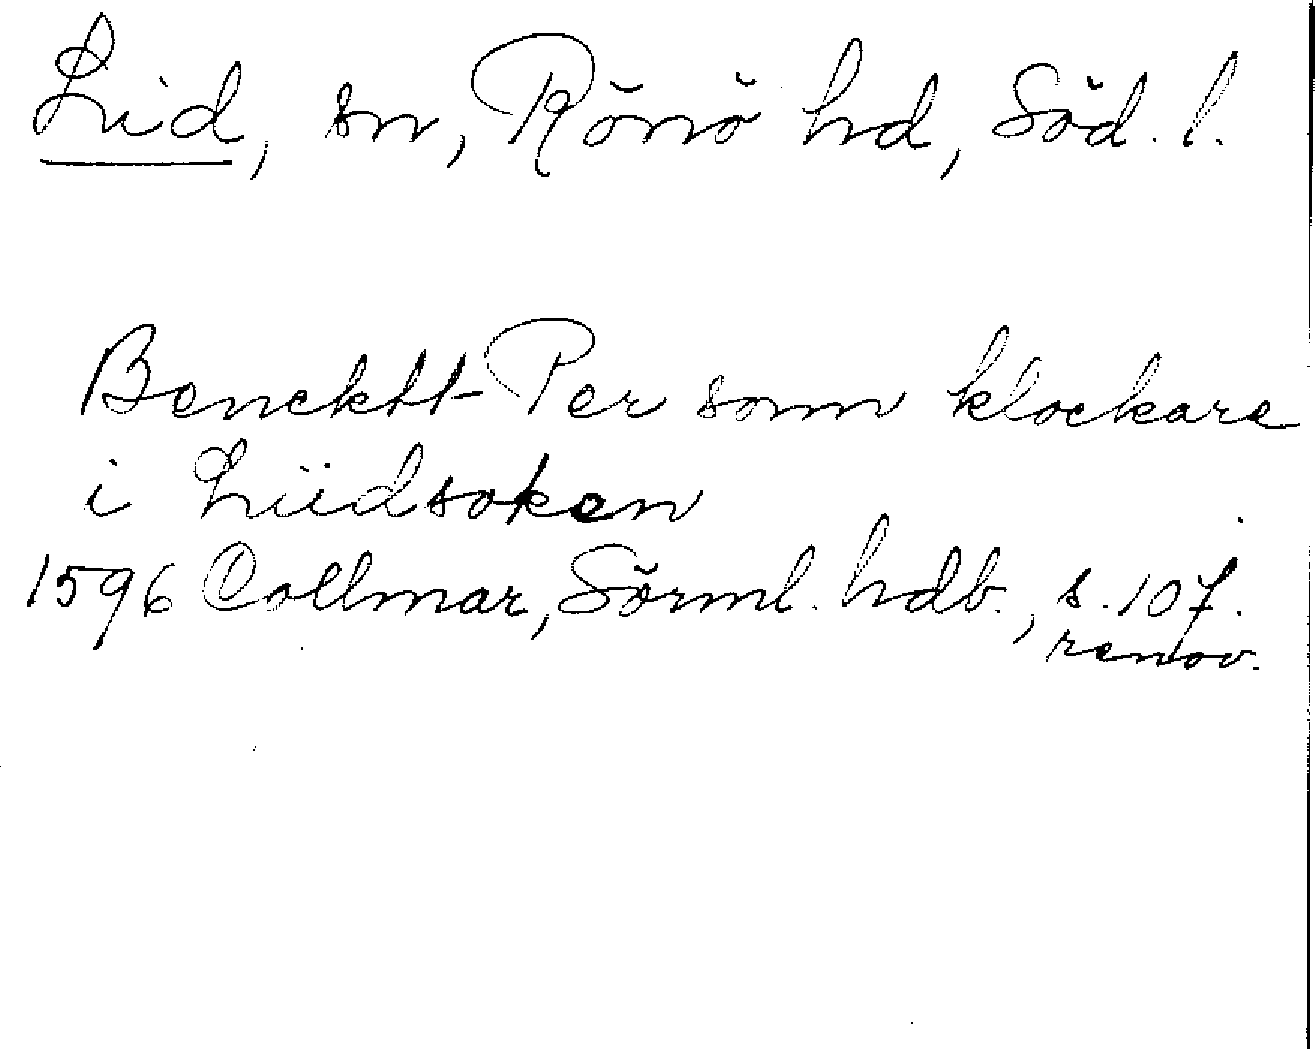 Lid, sn, Rönö hd, Söd. l.
Bencktt Per som klockare
i Liidsoken
1596 Collmar, Sörml. hdb., s. 107.
renov.